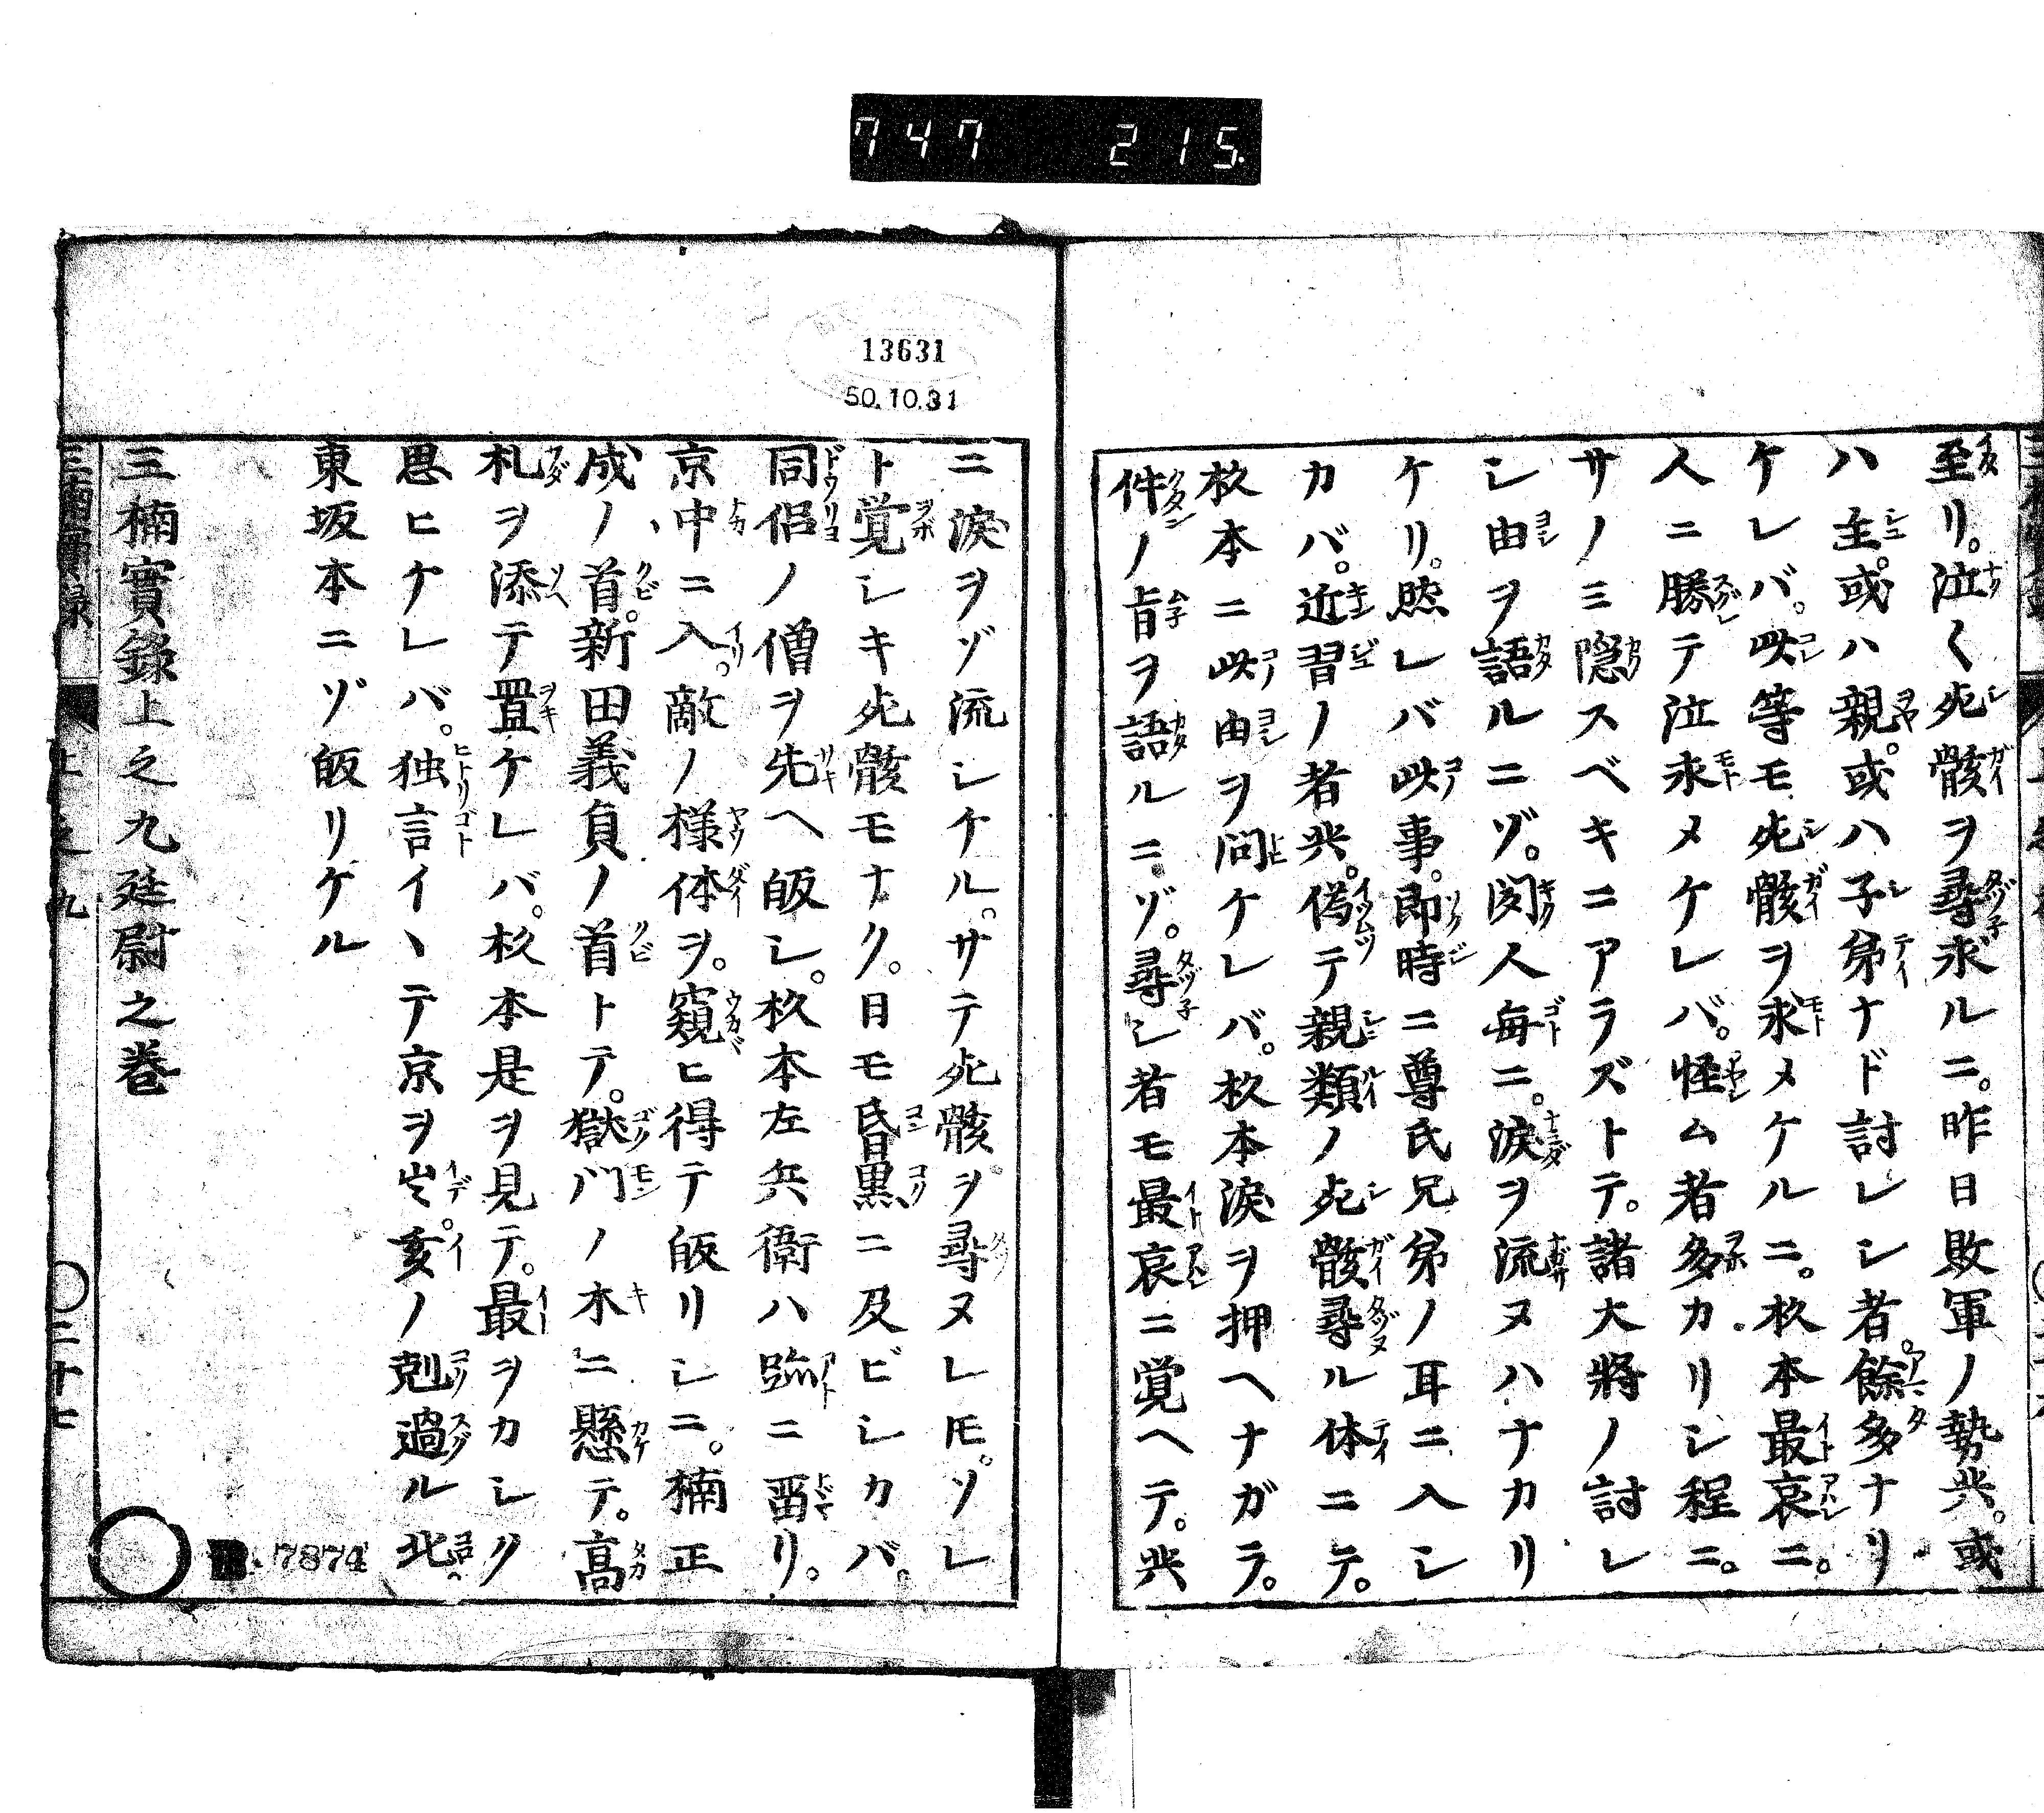 747 215.
至リ。泣く死骸ヲ尋求ルニ。昨日敗軍ノ勢共。或
ハ主。或ハ親。或ハ子弟ナド討レシ者。餘多ナリ
ケレバ。此等モ死骸ヲ求メケルニ。杦本最哀ニ。
人ニ勝テ泣求メケレバ。怪ム者多カリシ程ニ。
サノミ隠スベキニアラズトテ。諸大將ノ討レ
シ由ヲ語ルニゾ。聞人毎ニ。涙ヲ流ヌハナカリ
ケリ。然レバ此事。即時ニ尊氏兄弟ノ耳ニ入シ
カバ。近習ノ者共。偽テ親類ノ死骸尋ル体ニテ。
杦本ニ此由ヲ問ケレバ。杦本涙ヲ押ヘナガラ。
件ノ旨ヲ語ルニゾ。尋シ者モ最哀ニ覚ヘテ。共
13631
50.10.31
ニ涙ヲゾ流シケル。サテ死骸ヲ尋ヌレ𪜈。ソレ
ト覚シキ死骸モナク。日モ昏黒ニ及ビシカバ。
同侶ノ僧ヲ先ヘ皈シ。杦本左兵衛ハ跡ニ畱リ。
京中ニ入。敵ノ様体ヲ。窺ヒ得テ皈リシニ。楠正
成ノ首。新田義貞ノ首トテ。獄門ノ木ニ懸テ。高
札ヲ添テ置ケレバ。杦本是ヲ見テ。最ヲカシク
思ヒケレバ。独言イヽテ京ヲ出。亥ノ剋過ル北
東坂本ニゾ皈リケル
三楠實錄上之九廷尉之巻
三楠實録 上之九 三十七
7874